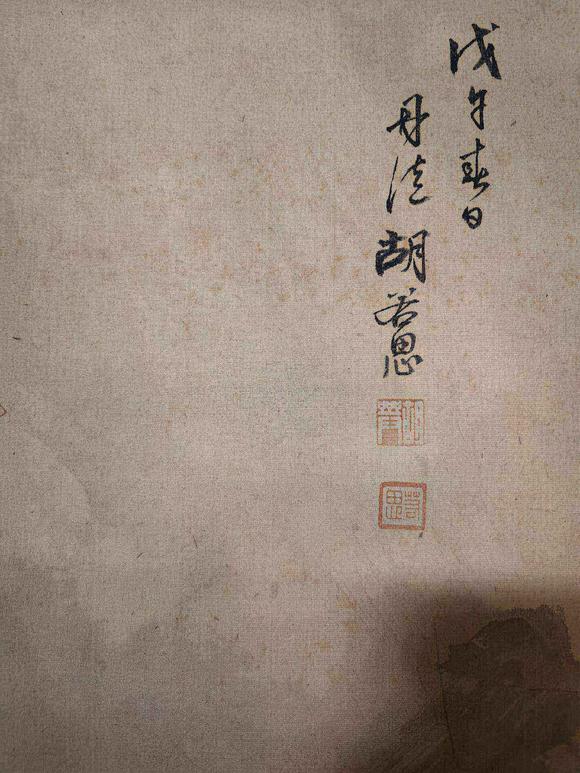 戊午春日
丹徒胡若思
若思